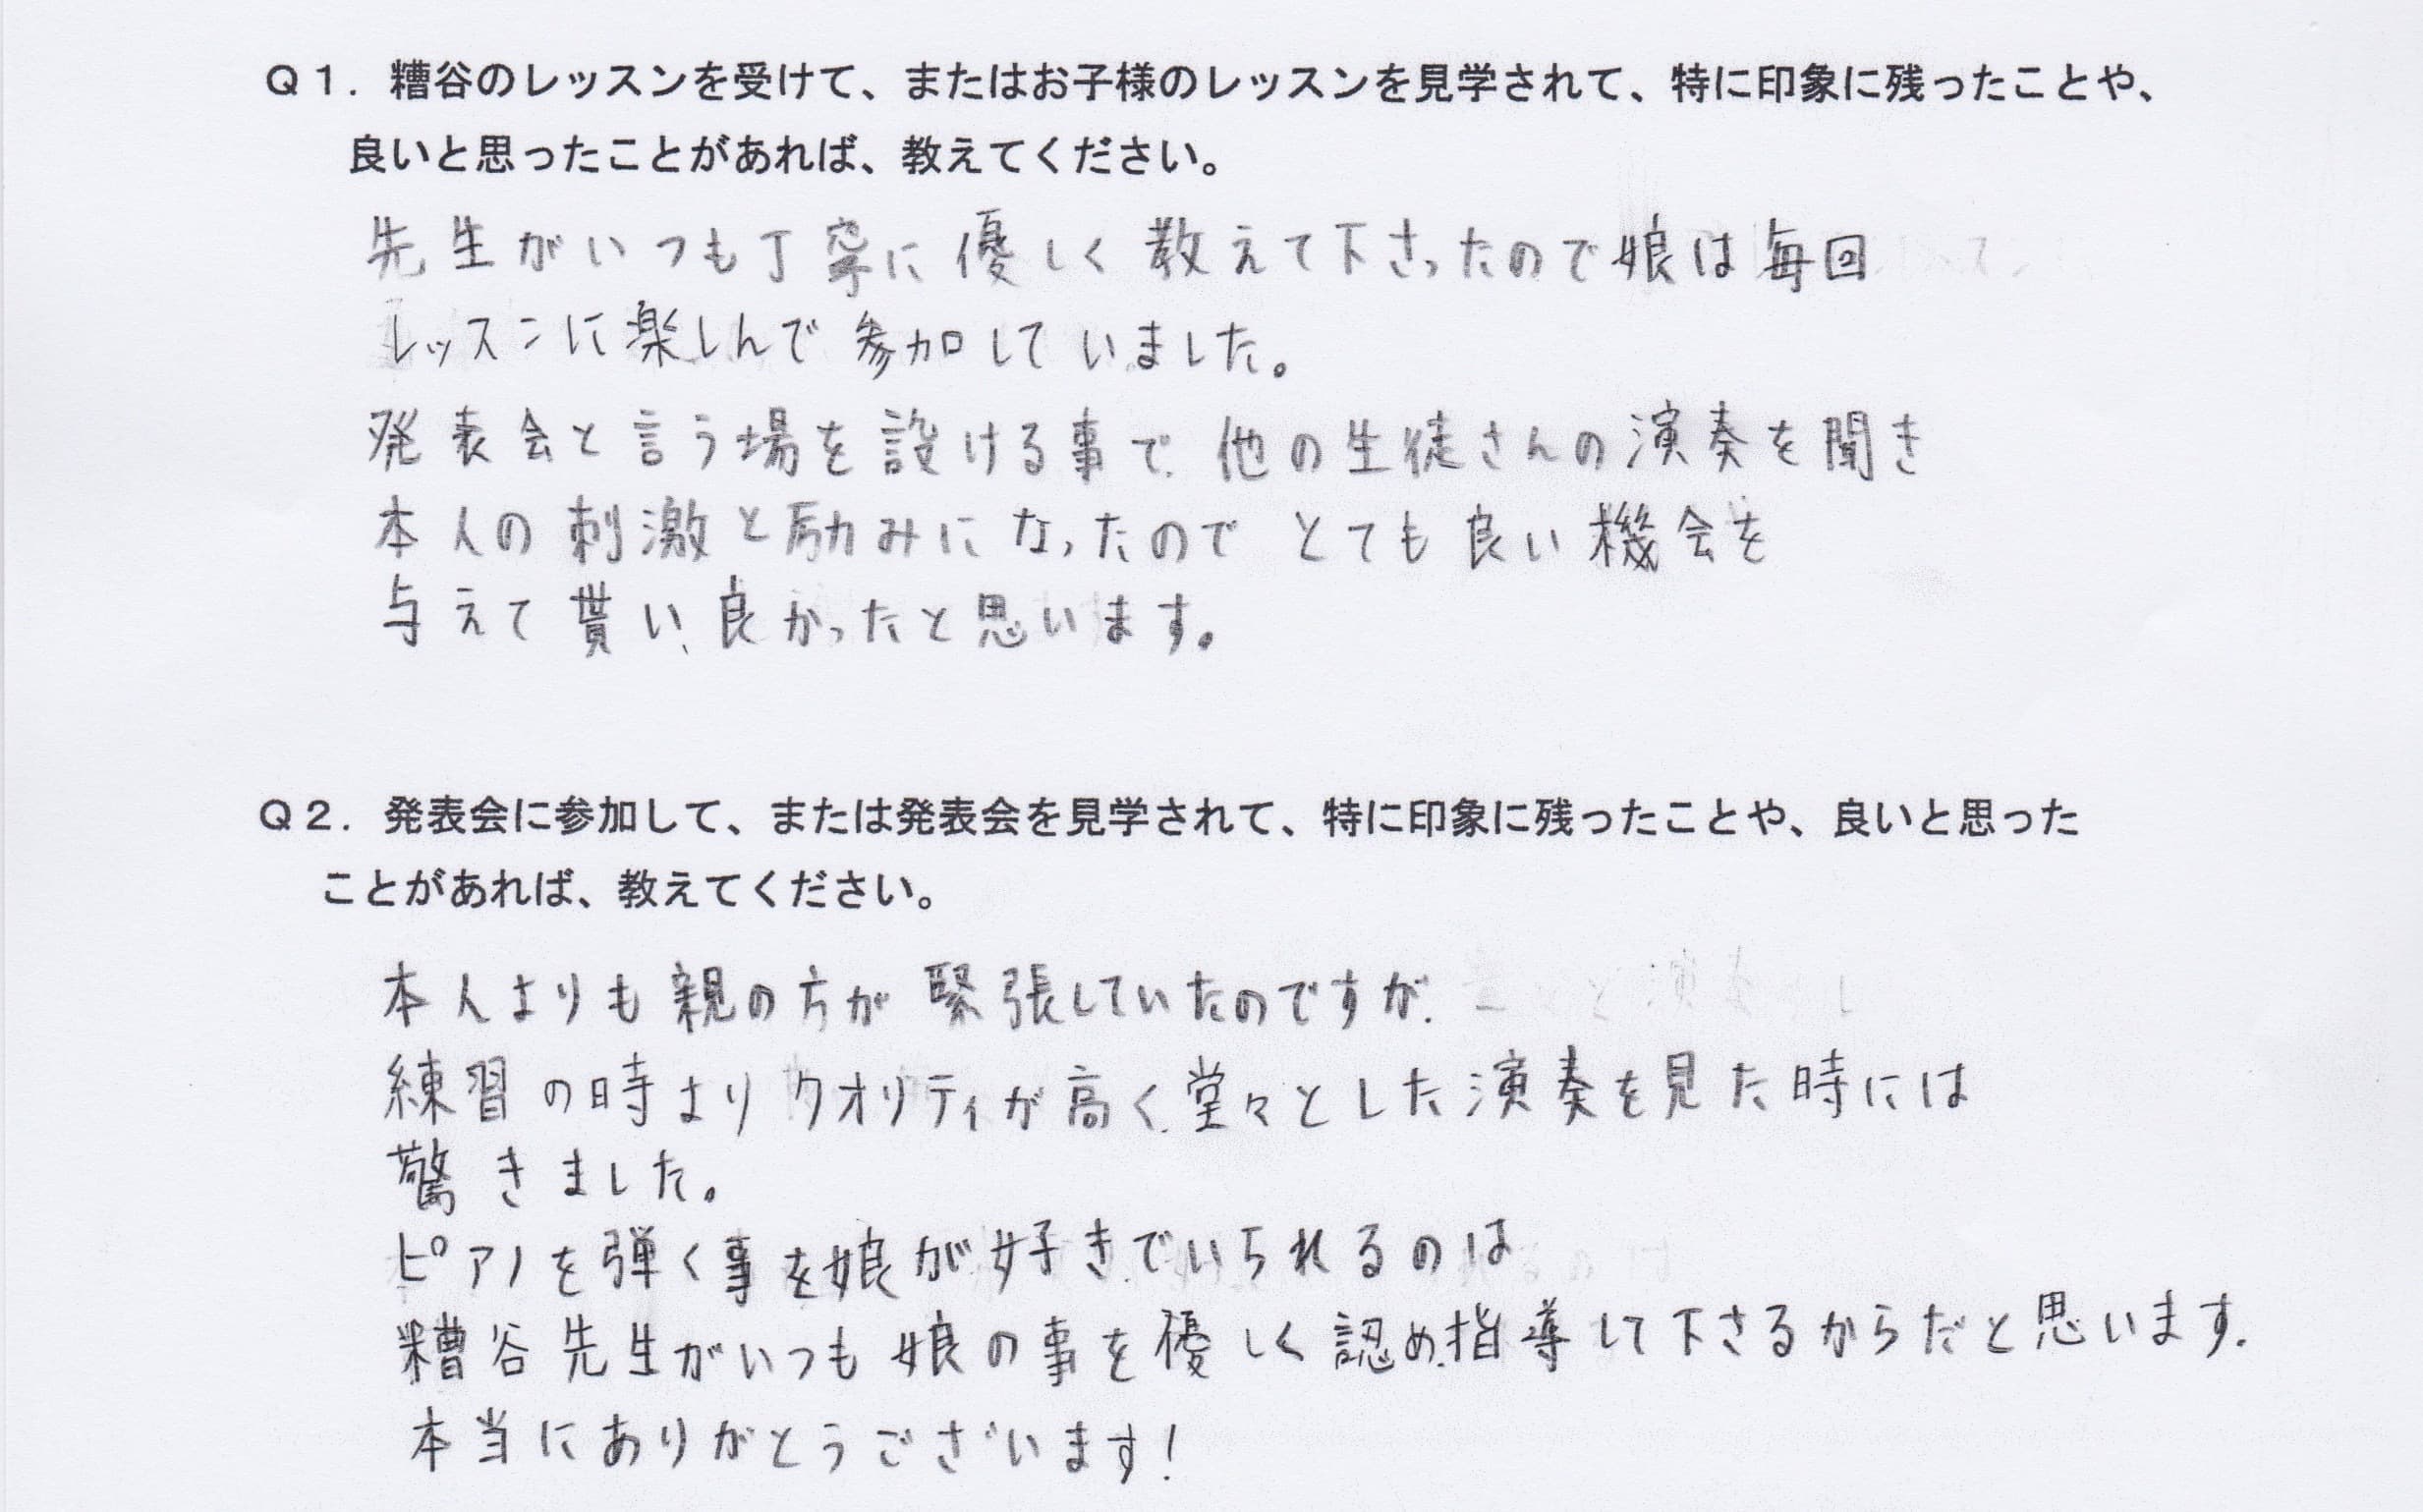 Ｑ１．糟谷のレッスンを受けて、またはお子様のレッスンを見学されて、特に印象に残ったことや、
良いと思ったことがあれば、教えてください。
先生がいつも丁寧に優しく教えて下さったので娘は毎回
レッスンに楽しんで参加していました。
発表会と言う場を設ける事で、他の生徒さんの演奏を聞き
本人の刺激と励みになったので とても良い機会を
与えて貰い、良かったと思います。
Ｑ２．発表会に参加して、または発表会を見学されて、特に印象に残ったことや、良いと思った
ことがあれば、教えてください。
本人よりも親の方が緊張していたのですが、
練習の時よりクオリティが高く、堂々とした演奏を見た時には
驚きました。
ピアノを弾く事を娘が好きでいられるのは
糟谷先生がいつも娘の事を優しく認め、指導して下さるからだと思います。
本当にありがとうございます！